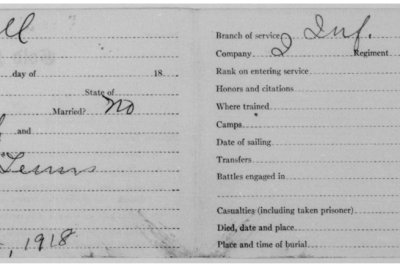 ll
day of 18
State of
Married? No
and
Tenns
, 1918
Branch of service Inf.
Company I Regiment
Rank on entering service
Honors and citations
Where trained
Camps
Date of sailing
Transfers
Battles engaged in
Casualties (including taken prisoner)
Died, date and place
Place and time of burial